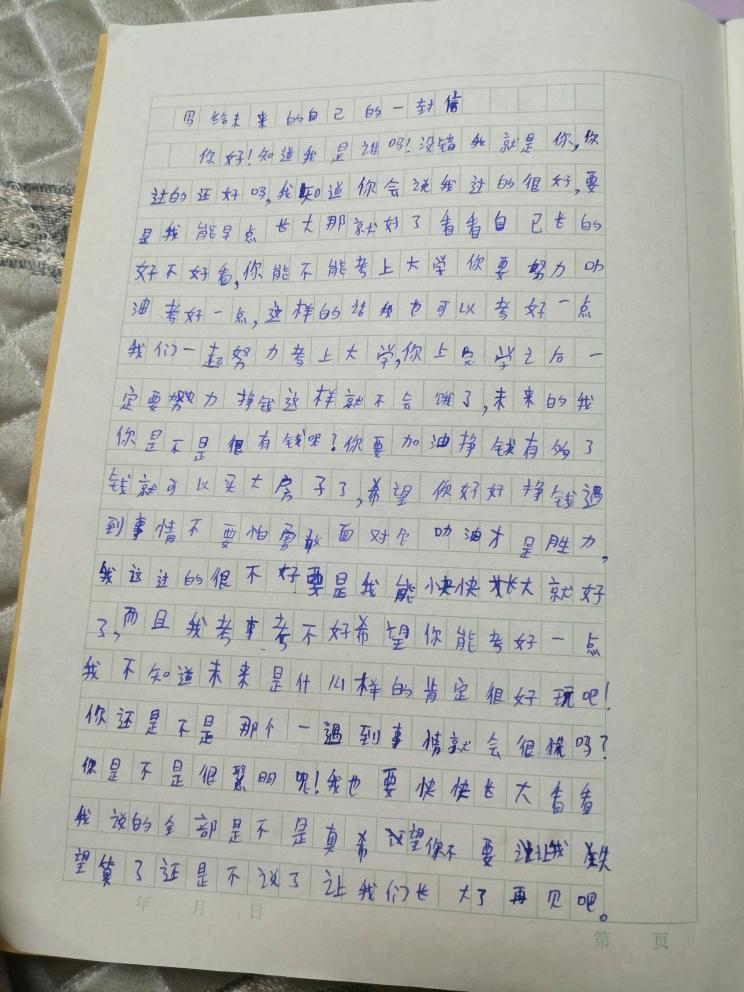 写给未来的自己的一封信
你好!知道我是谁吗!没错我就是你,你
过的还好吗,我知道你会说我过的很好,要
是我能早点长大那就好了看看自己长的
好不好看,你能不能考上大学你要努力加
油考好一点,这样的话我也可以考好一点
我们一起努力考上大学,你上完学之后一
定要努力挣钱这样就不会饿了,未来的我
你是不是很有钱呢?你要加油挣钱有的了
钱就可以买大房子了,希望你好好挣钱遇
到事情不要怕勇敢面对会加油才是胜力,
我这过的很不好要是我能快快长大就好
了,而且我考事考不好希望你能考好一点
我不知道未来是什么样的肯定很好玩吧!
你还是不是那个一遇到事情就会很慌吗?
你是不是很聪明呢!我也要快快长大看看
我说的全部是不是真希望你不要让我失
望算了还是不说了让我们长大了再见吧。
年 月 日
第 页